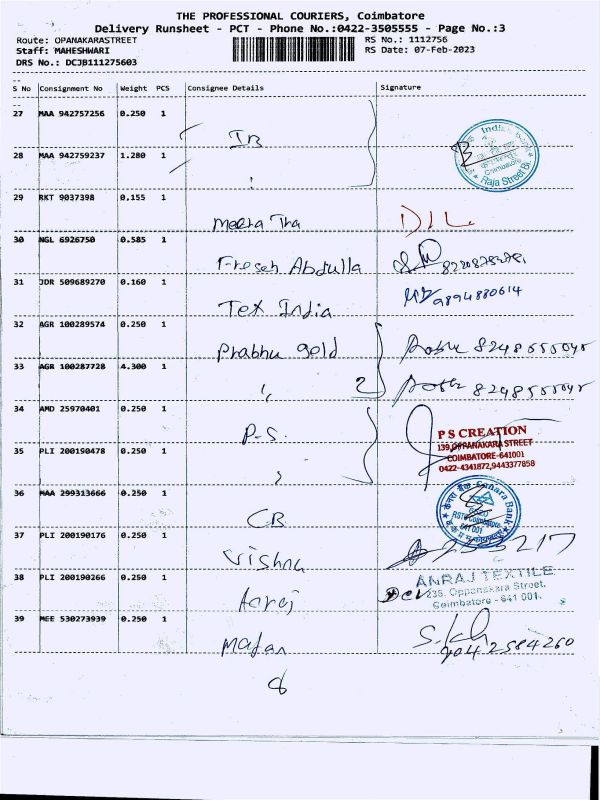 THE PROFESSIONAL COURIERS, Coimbatore
Delivery Runsheet - PCT - Phone No.:0422-3505555 - Page No.:3
Route: OPANAKARASTREET RS No.: 1112756
Staff: MAHESHWARI RS Date: 07-Feb-2023
DRS No.: DCJB111275603
S No Consignment No Weight PCS Consignee Details Signature
27 MAA 942757256 0.250 1
IB
28 MAA 942759237 1.280 1
Indian
Coimbatore
Raja Street Br
29 RKT 9037398 0.155 1
Meera Tha
30 NGL 6926750 0.585 1
Fresch Abdulla
31 JDR 509689270 0.160 1
Tex India 9894880614
32 AGR 100289574 0.250 1
Prabhu gold
33 AGR 100287728 4.300 1
2
34 AMD 25970401 0.250 1
P.S.
P S CREATION
139,OPPANAKARA STREET
COIMBATORE-641001
0422-4341872,9443377858
35 PLI 200190478 0.250 1
36 MAA 299313666 0.250 1
CB
Canara Bank
641 001
37 PLI 200190176 0.250 1
Vishnu
38 PLI 200190266 0.250 1
ANRAJ TEXTILE
235, Oppanakara Street,
Coimbatore - 641 001.
39 MEE 530273939 0.250 1
9042584260
8